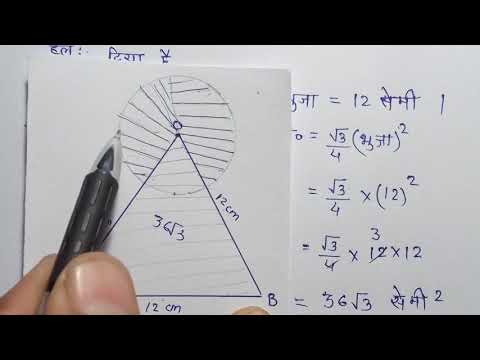 हल :- दिया है
भुजा = 12 सेमी ।
= √3/4 (भुजा)²
= √3/4 × (12)²
= √3/4 × 12 × 12
3
= 36√3 सेमी 2
O
12cm
36√3
12 cm
B